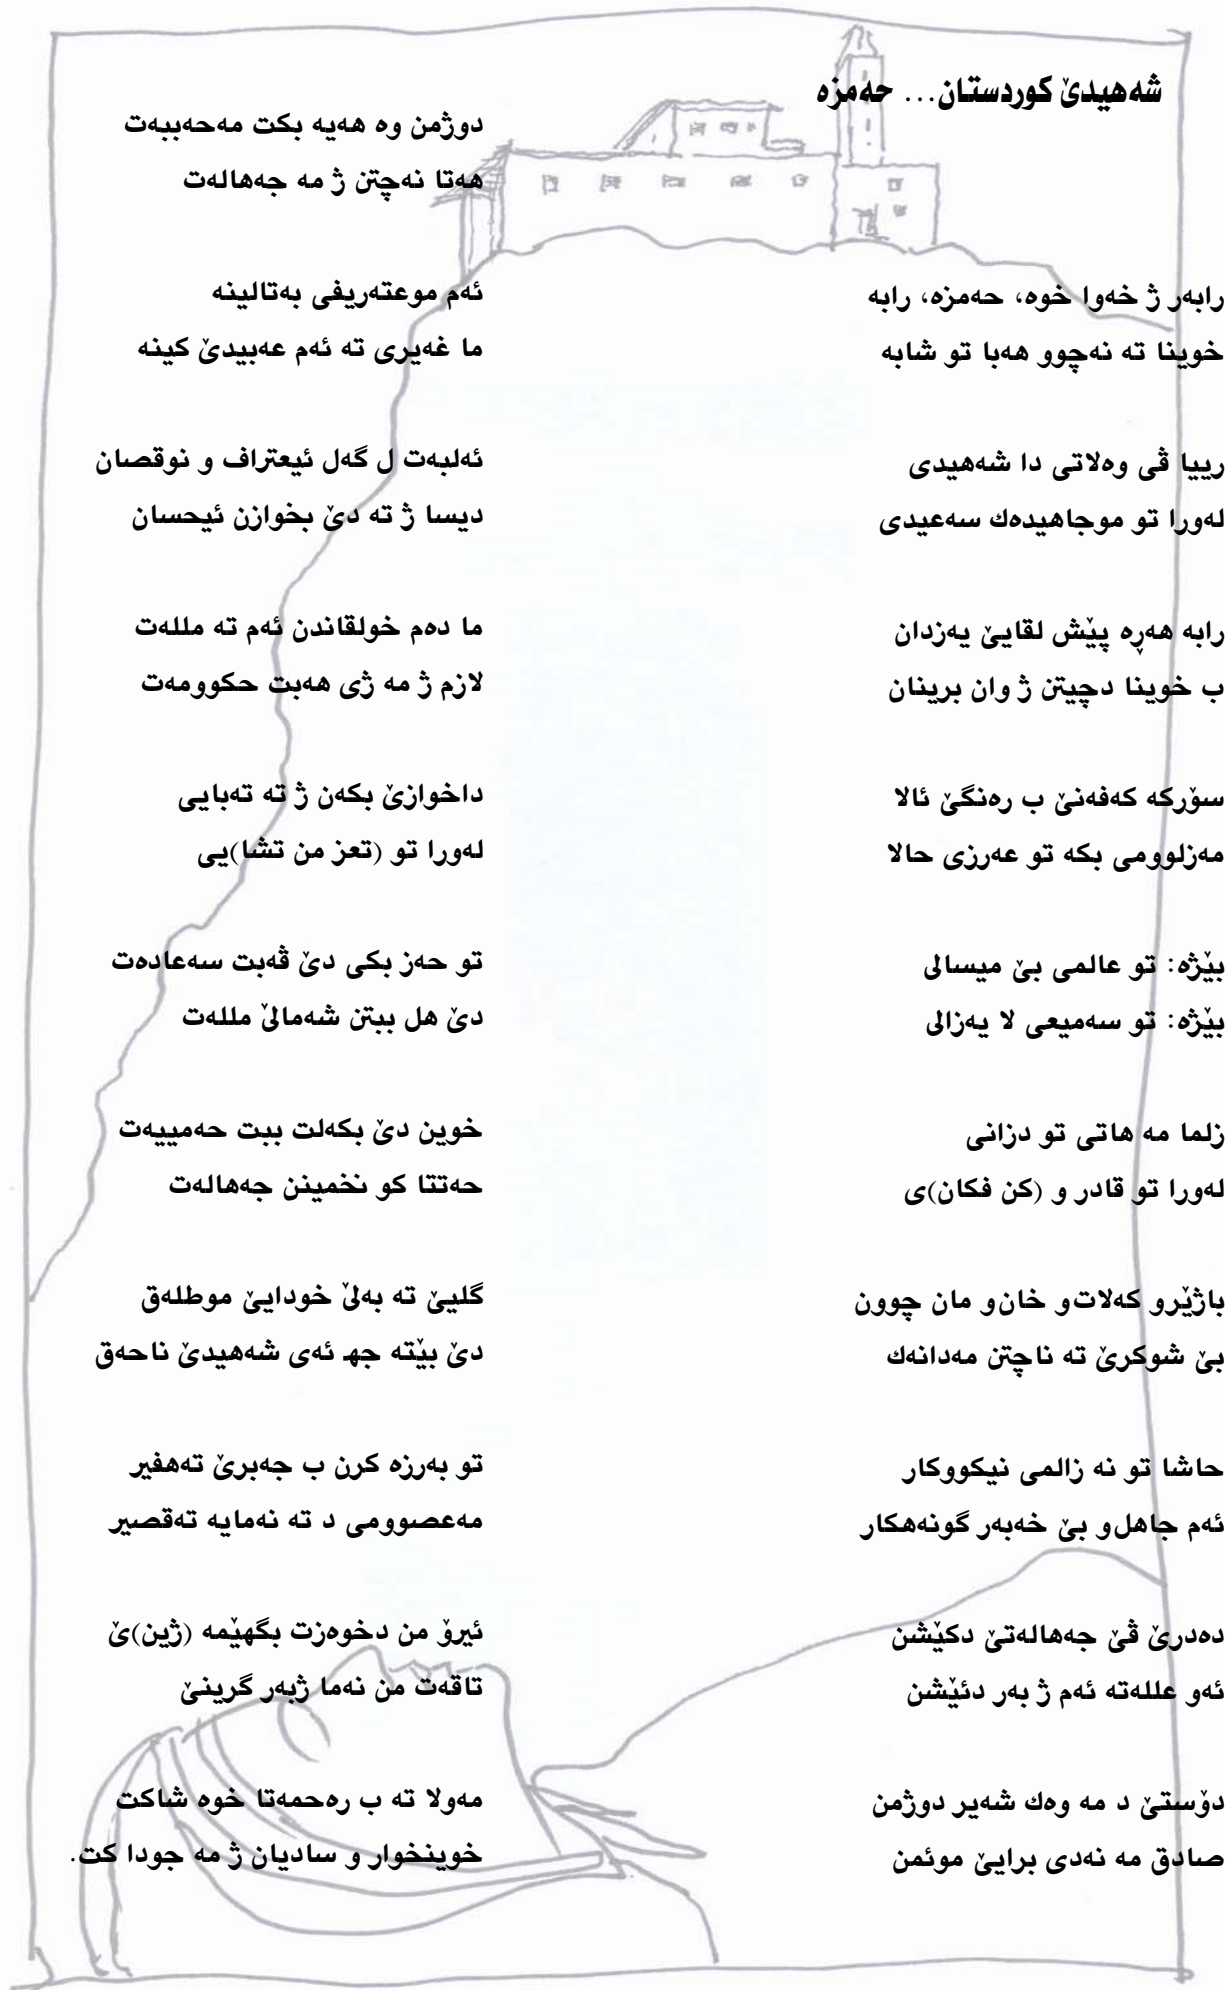 شەهیدێ کوردستان... حەمزە
رابەر ژ خەوا خوە، حەمزە، رابە
خوینا تە نەچوو هەبا تو شابە
رییا ڤی وەلاتی دا شەهیدی
لەورا تو موجاهیدەك سەعیدی
رابە هەڕە پێش لقایێ یەزدان
ب خوینا دچیتن ژ وان برینان
سۆرکە کەفەنێ ب رەنگێ ئالا
مەزلوومی بکە تو عەرزی حالا
بێژە: تو عالمی بێ میسالی
بێژە: تو سەمیعی لا یەزالی
زلما مە هاتی تو دزانی
لەورا تو قادر و (کن فکان)ی
باژێرو کەلات‌و خان‌و مان چوون
بێ شوکرێ تە ناچتن مەدانەك
حاشا تو نە زالمی نیکووکار
ئەم جاهل‌و بێ خەبەر گونەهکار
دەدرێ ڤێ جەهالەتێ دکێشن
ئەو عللەتە ئەم ژ بەر دئێشن
دۆستێ د مە وەك شەیر دوژمن
صادق مە نەدی برایێ موئمن
دوژمن وە هەیە بکت مەحەببەت
هەتا نەچتن ژ مە جەهالەت
ئەم موعتەریفی بەتالینە
ما غەیری تە ئەم عەبیدێ کینە
ئەلبەت ل گەل ئیعتراف و نوقصان
دیسا ژ تە دێ بخوازن ئیحسان
ما دەم خولقاندن ئەم تە مللەت
لازم ژ مە ژی هەبت حکوومەت
داخوازێ بکەن ژ تە تەبایی
لەورا تو (تعز من تشا)یی
تو حەز بکی دێ ڤەبت سەعادەت
دێ هل ببتن شەمالێ مللەت
خوین دێ بکەلت ببت حەمییەت
حەتتا کو نخمینن جەهالەت
گلیێ تە بەلێ خودایێ موطلەق
دێ بێتە جهـ ئەی شەهیدێ ناحەق
تو بەرزە کرن ب جەبرێ تەهفیر
مەعصوومی د تە نەمایە تەقصیر
ئیرۆ من دخوەزت بگهێمە (ژین)ێ
تاقەت من نەما ژبەر گرینێ
مەولا تە ب رەحمەتا خوە شاکت
خوینخوار و سادیان ژ مە جودا کت.